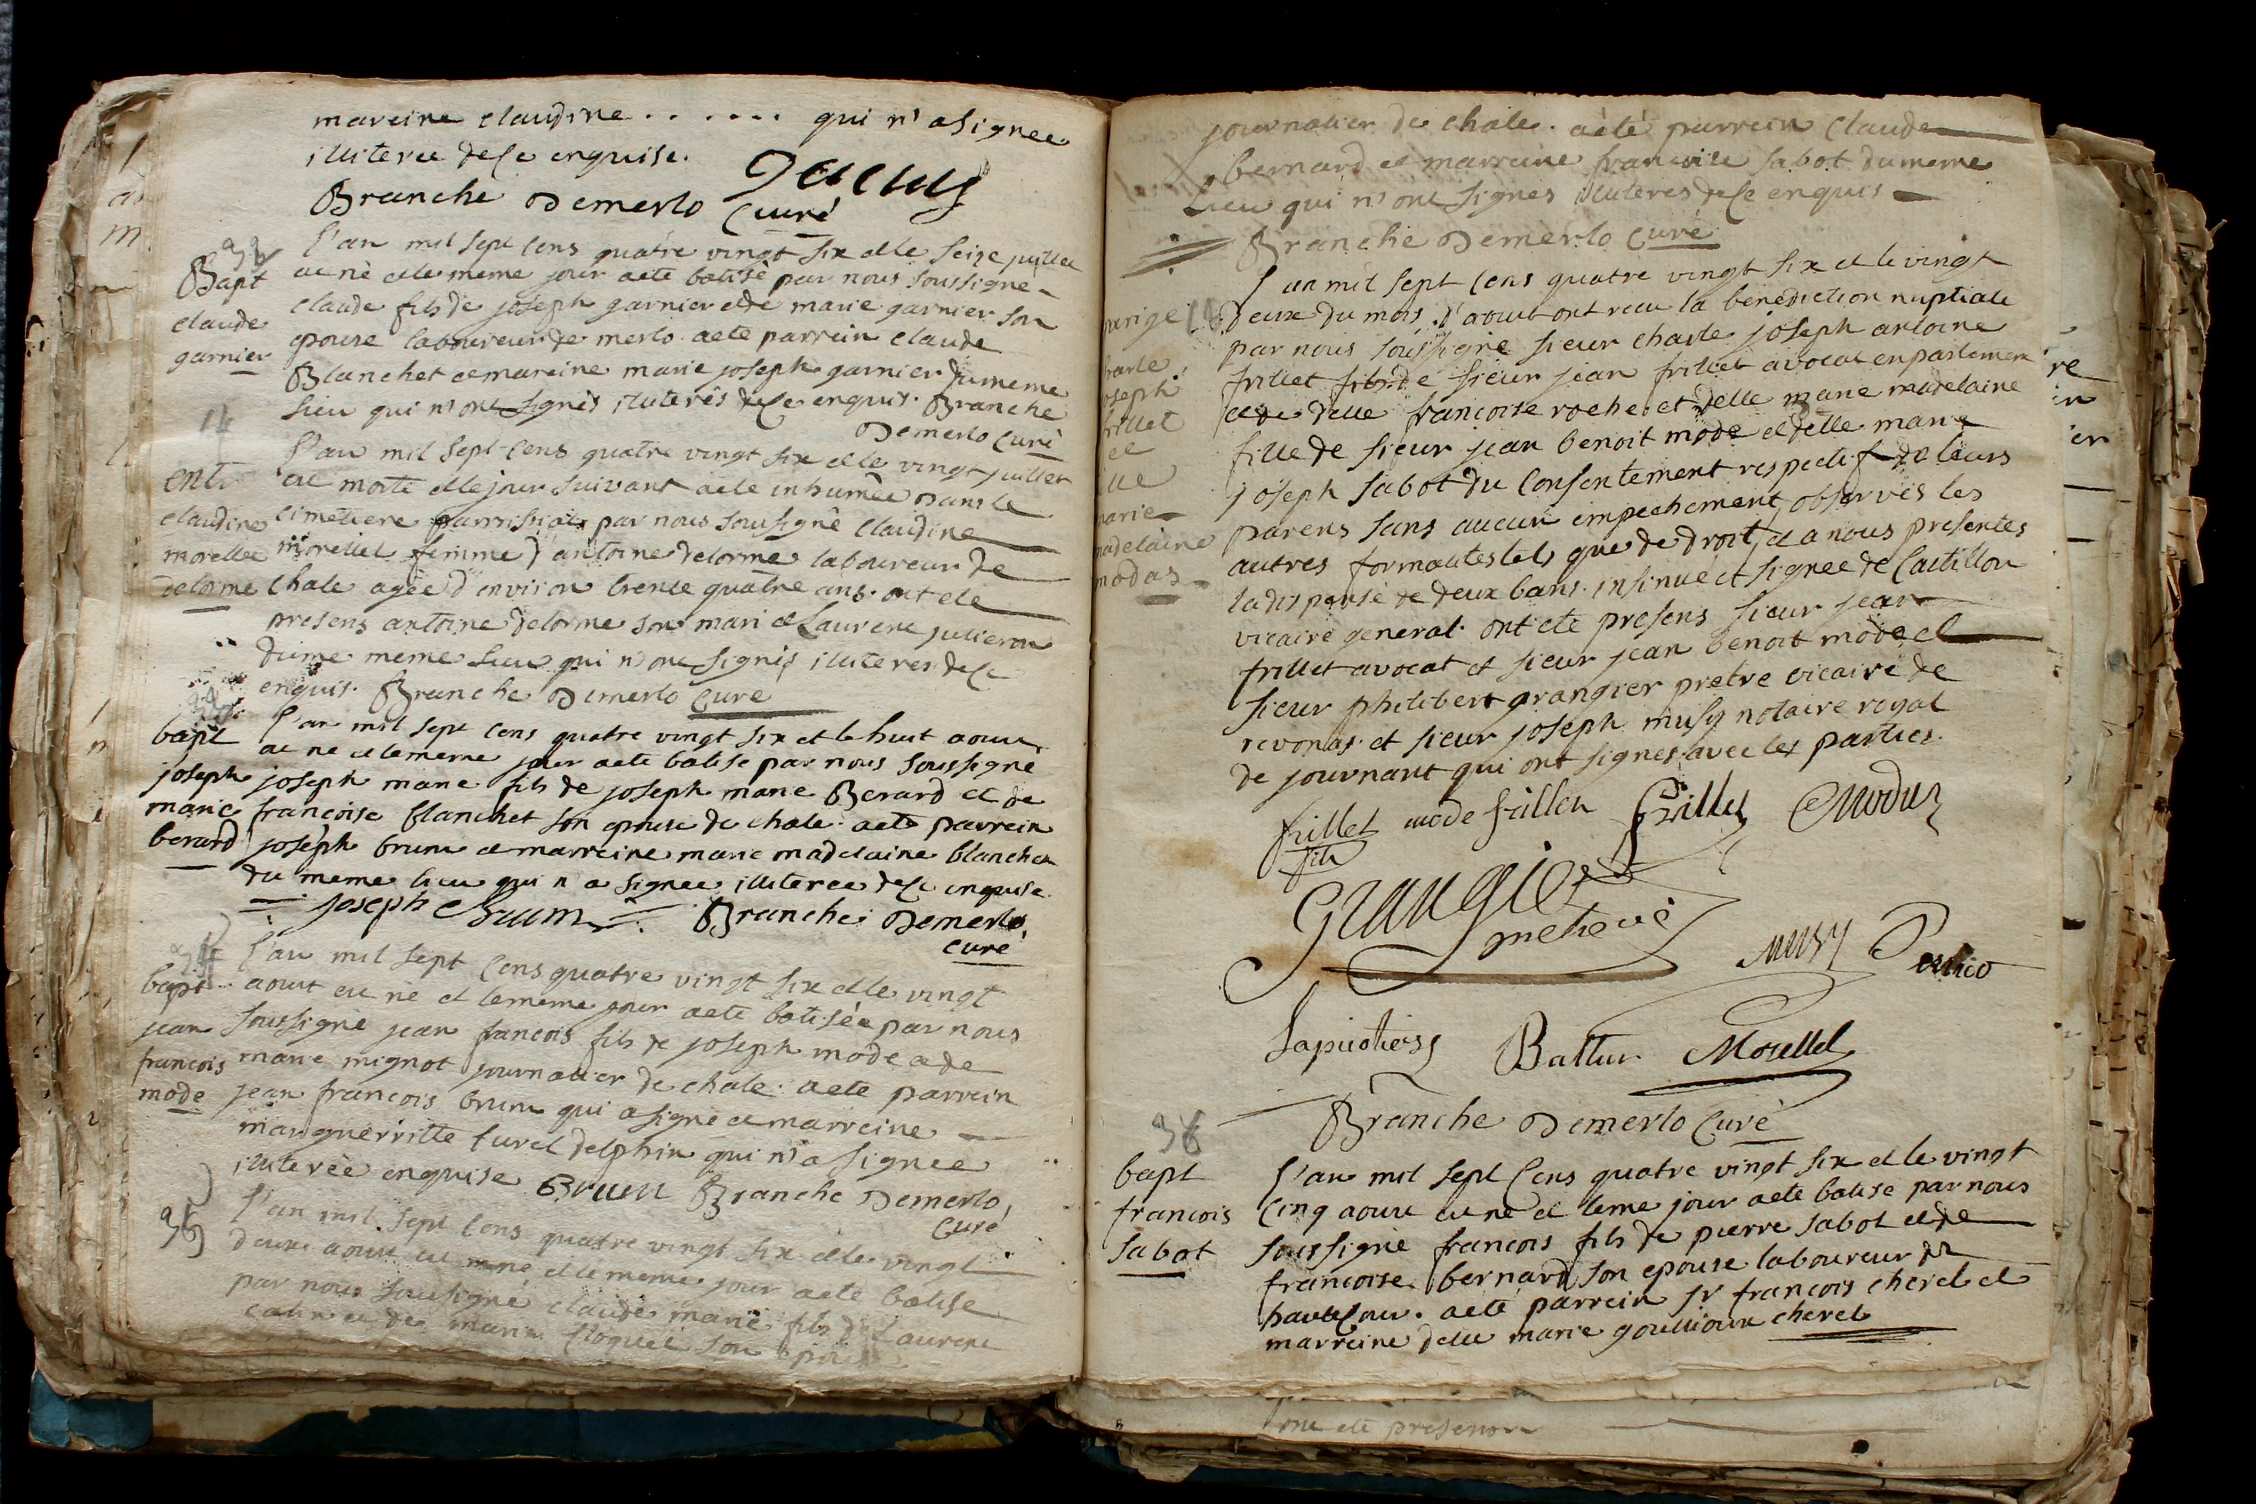 mareine claudine . . . . . . qui n'a signee
illiteree de ce enquise.
Branche Demerlo Curé
32
Bapt
claude
garnier
L'an mil sept cens quatre vingt six et le seize juillet
ae né et le meme jour aeté batisé par nous soussigné
claude fils de joseph garnier et de marie garnier son
epouse laboureur de merlo. aeté parrein claude
Blanchet et mareine marie joseph garnier du meme
lieu qui n'ont signés illiterés de ce enquis. Branche
Demerlo Curé
14
ent.
claudine
morellet
delorme
L'an mil sept cens quatre vingt six et le vingt juillet
est morte et le jour suivant aeté inhumée dans le
cimetiere parrissial par nous sousigné claudine
morellet femme d'antoine delorme laboureur de
Chale agée d'environ trente quatre ans. ont eté
presens antoine delorme son mari et Laurent julieron
du meme lieu qui n'ont signés illiterés de ce
enquis. Branche Demerlo Curé
33
bapt
joseph
marie
berard
L'an mil sept cens quatre vingt six et le huit aout
ae né et le meme jour aeté batisé par nous soussigné
joseph marie fils de joseph marie Berard et de
francoise blanchet son epouse de chale. aeté parrein
joseph brun et marreine marie madelaine blanchet
du meme lieu qui n'a signee illiteree de ce enquise.
joseph Brun Branche Demerlo
curé
34
bapt
jean
francois
mode
L'an mil sept cens quatre vingt six et le vingt
aout ae né et le meme jour aeté batisée par nous
soussigné jean francois fils de joseph mode et de
marie mignot journalier de chale. aeté parrein
jean francois brun qui a signé et marreine
marguerritte turel delphin qui n'a signee
illiterée enquise Brun Branche Demerlo
Curé
35
L'an mil sept cens quatre vingt six et le vingt
deux aout ae né et le meme jour aeté batisé
par nous sousigné claude marie fils de Laurent
et de marie son epouse
journalier de chale. aeté parrein Claude
bernard et marreine francoise sabot du meme
Lieu qui n'ont signés illiterés de ce enquis
Branche Demerlo Curé
marige
charle
joseph
frillet
et
marie
madelaine
modas
L'an mil sept cens quatre vingt six et le vingt
deux du mois d'aout ont recu la benediction nuptiale
par nous soussigné sieur charle joseph antoine
frillet fils de sieur jean frillet avocat en parlement
et de delle francoise roche. et delle marie madelaine
fille de sieur jean benoit mode et delle marie
joseph sabot du Consentement respectif de leurs
parens sans aucun empechement, observés les
autres formautés tels que de droit, et a nous presentes
la dispense de deux bans. insinué et signee de Castillon
vicaire general. ont eté presens sieur jean
frillet avocat et sieur jean benoit mode et
sieur philibert grangier pretre vicaire de
revonas. et sieur joseph musy notaire royal
de journant qui ont signés avec les parties.
frillet mode frillet Frillet Moduz
fils
Grangier
musy
Battur Morellet
Branche Demerlo Curé
36
bapt
francois
sabot
L'an mil sept Cens quatre vingt six et le vingt
Cinq aout ae né et leme jour aeté batisé par nous
soussigné francois fils de pierre sabot et de
francoise bernard son epouse laboureur de
hautecour. aeté parrein sr francois cheret et
marreine delle marie goullioux cheret
ont eté presens